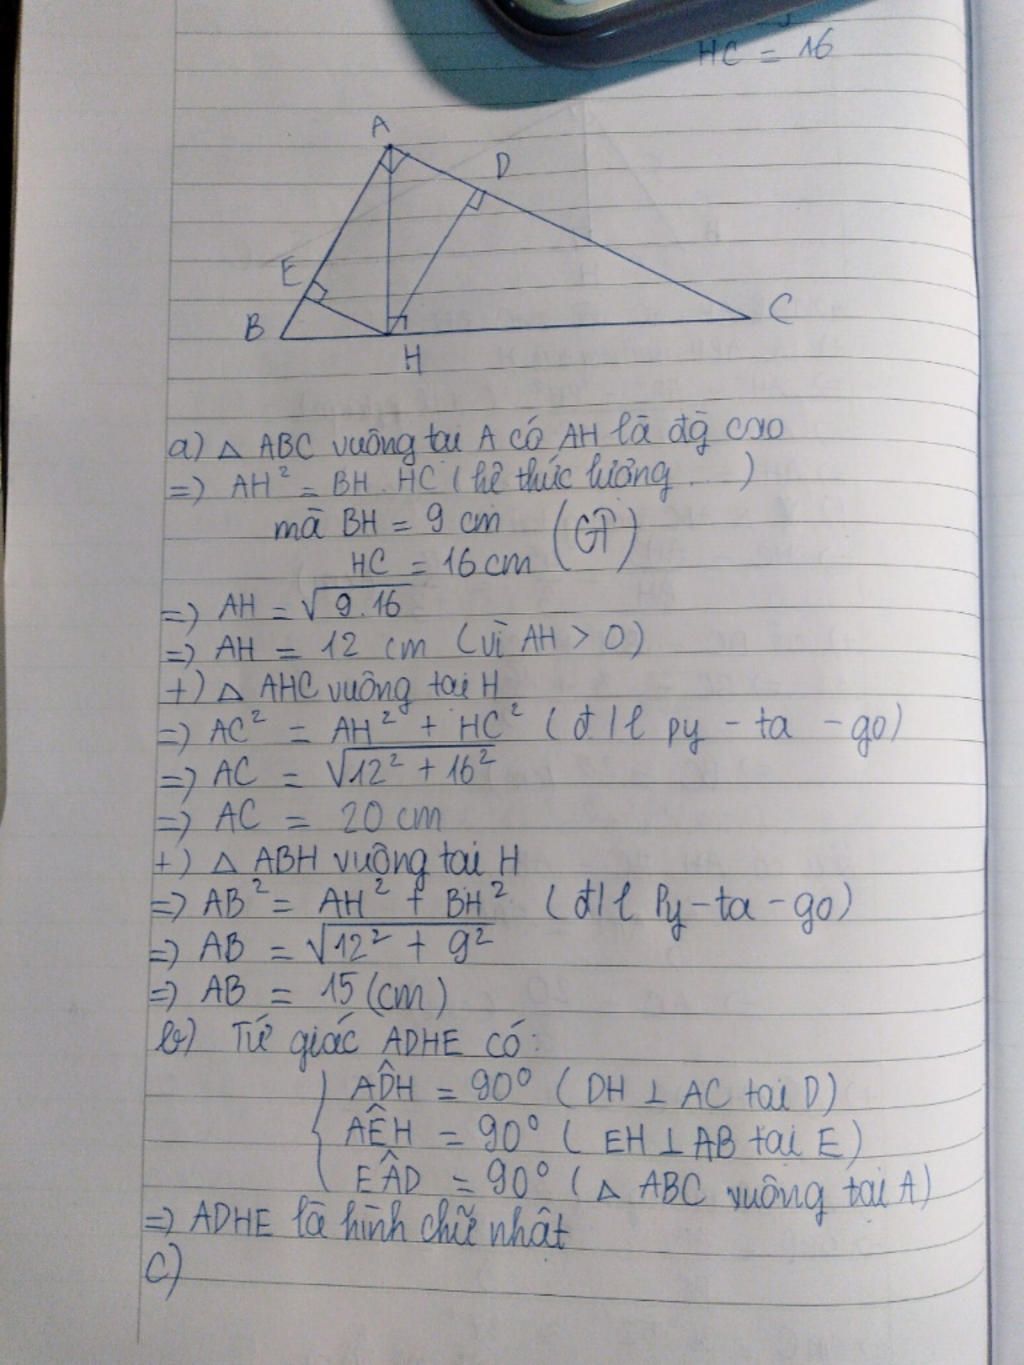 HC = 16
A
D
E
B
H
C
a) △ ABC vuông tại A có AH là đg cao
=> AH² = BH . HC ( hệ thức lượng ... )
mà BH = 9 cm
HC = 16 cm (GT)
=> AH = √9.16
=> AH = 12 cm (vì AH > 0)
+) △ AHC vuông tại H
=> AC² = AH² + HC² ( đ/l py - ta - go)
=> AC = √12² + 16²
=> AC = 20 cm
+) △ ABH vuông tại H
=> AB² = AH² + BH² ( đ/l Py - ta - go)
=> AB = √12² + 9²
=> AB = 15 (cm)
b) Tứ giác ADHE có:
AD̂H = 90° ( DH ⊥ AC tại D)
AÊH = 90° ( EH ⊥ AB tại E)
EÂD = 90° ( △ ABC vuông tại A)
=> ADHE là hình chữ nhật
c)